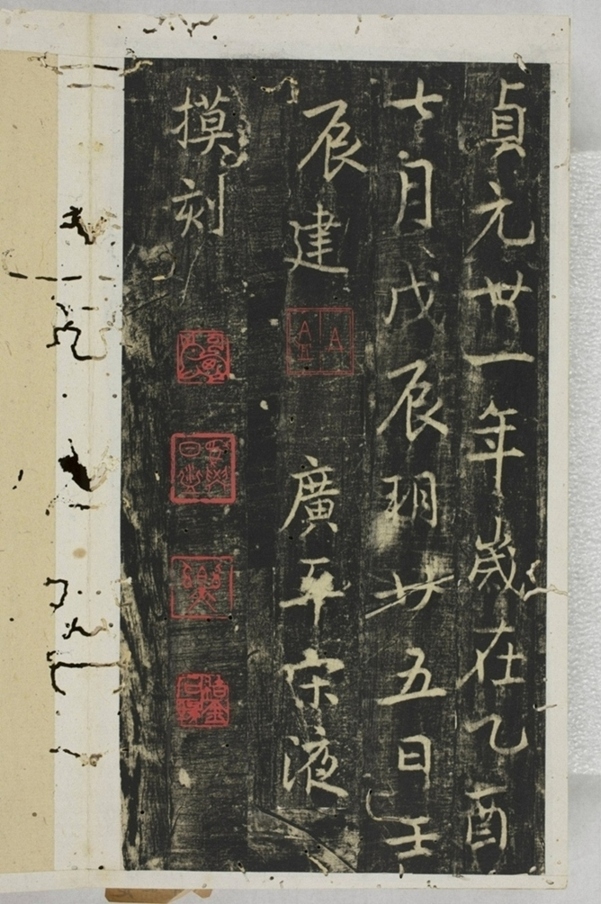 貞元廿一年歲在乙酉
七月戊辰朔廿五日壬
辰建 廣平宋液
摸刻